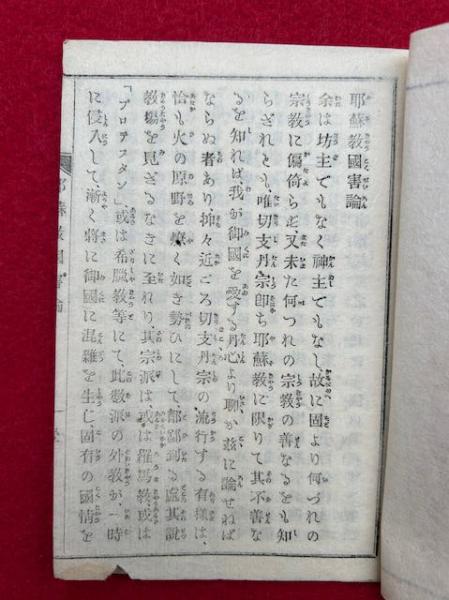 耶蘇教國害論
余は坊主でもなく神主でもなし、故に固より何づれの
宗教に偏倚らず、又未た何つれの宗教の善なるをも知
らざれとも、唯切支丹宗即ち耶蘇教に限りて其不善な
るを知れば、我が御國を愛する丹心より聊か玆に論せねば
ならぬ者あり抑々近ごろ切支丹宗の流行する有様は、
恰も火の原野を燎く如き勢ひにして都鄙到る處其説
教場を見ざるなきに至れり、其宗派は或は羅馬教或は
「プロテスタン」或は希臘教等にて、此數派の外教が、一時
に侵入して漸く將に御國に混雜を生じ、固有の國情を
耶蘇教國害論